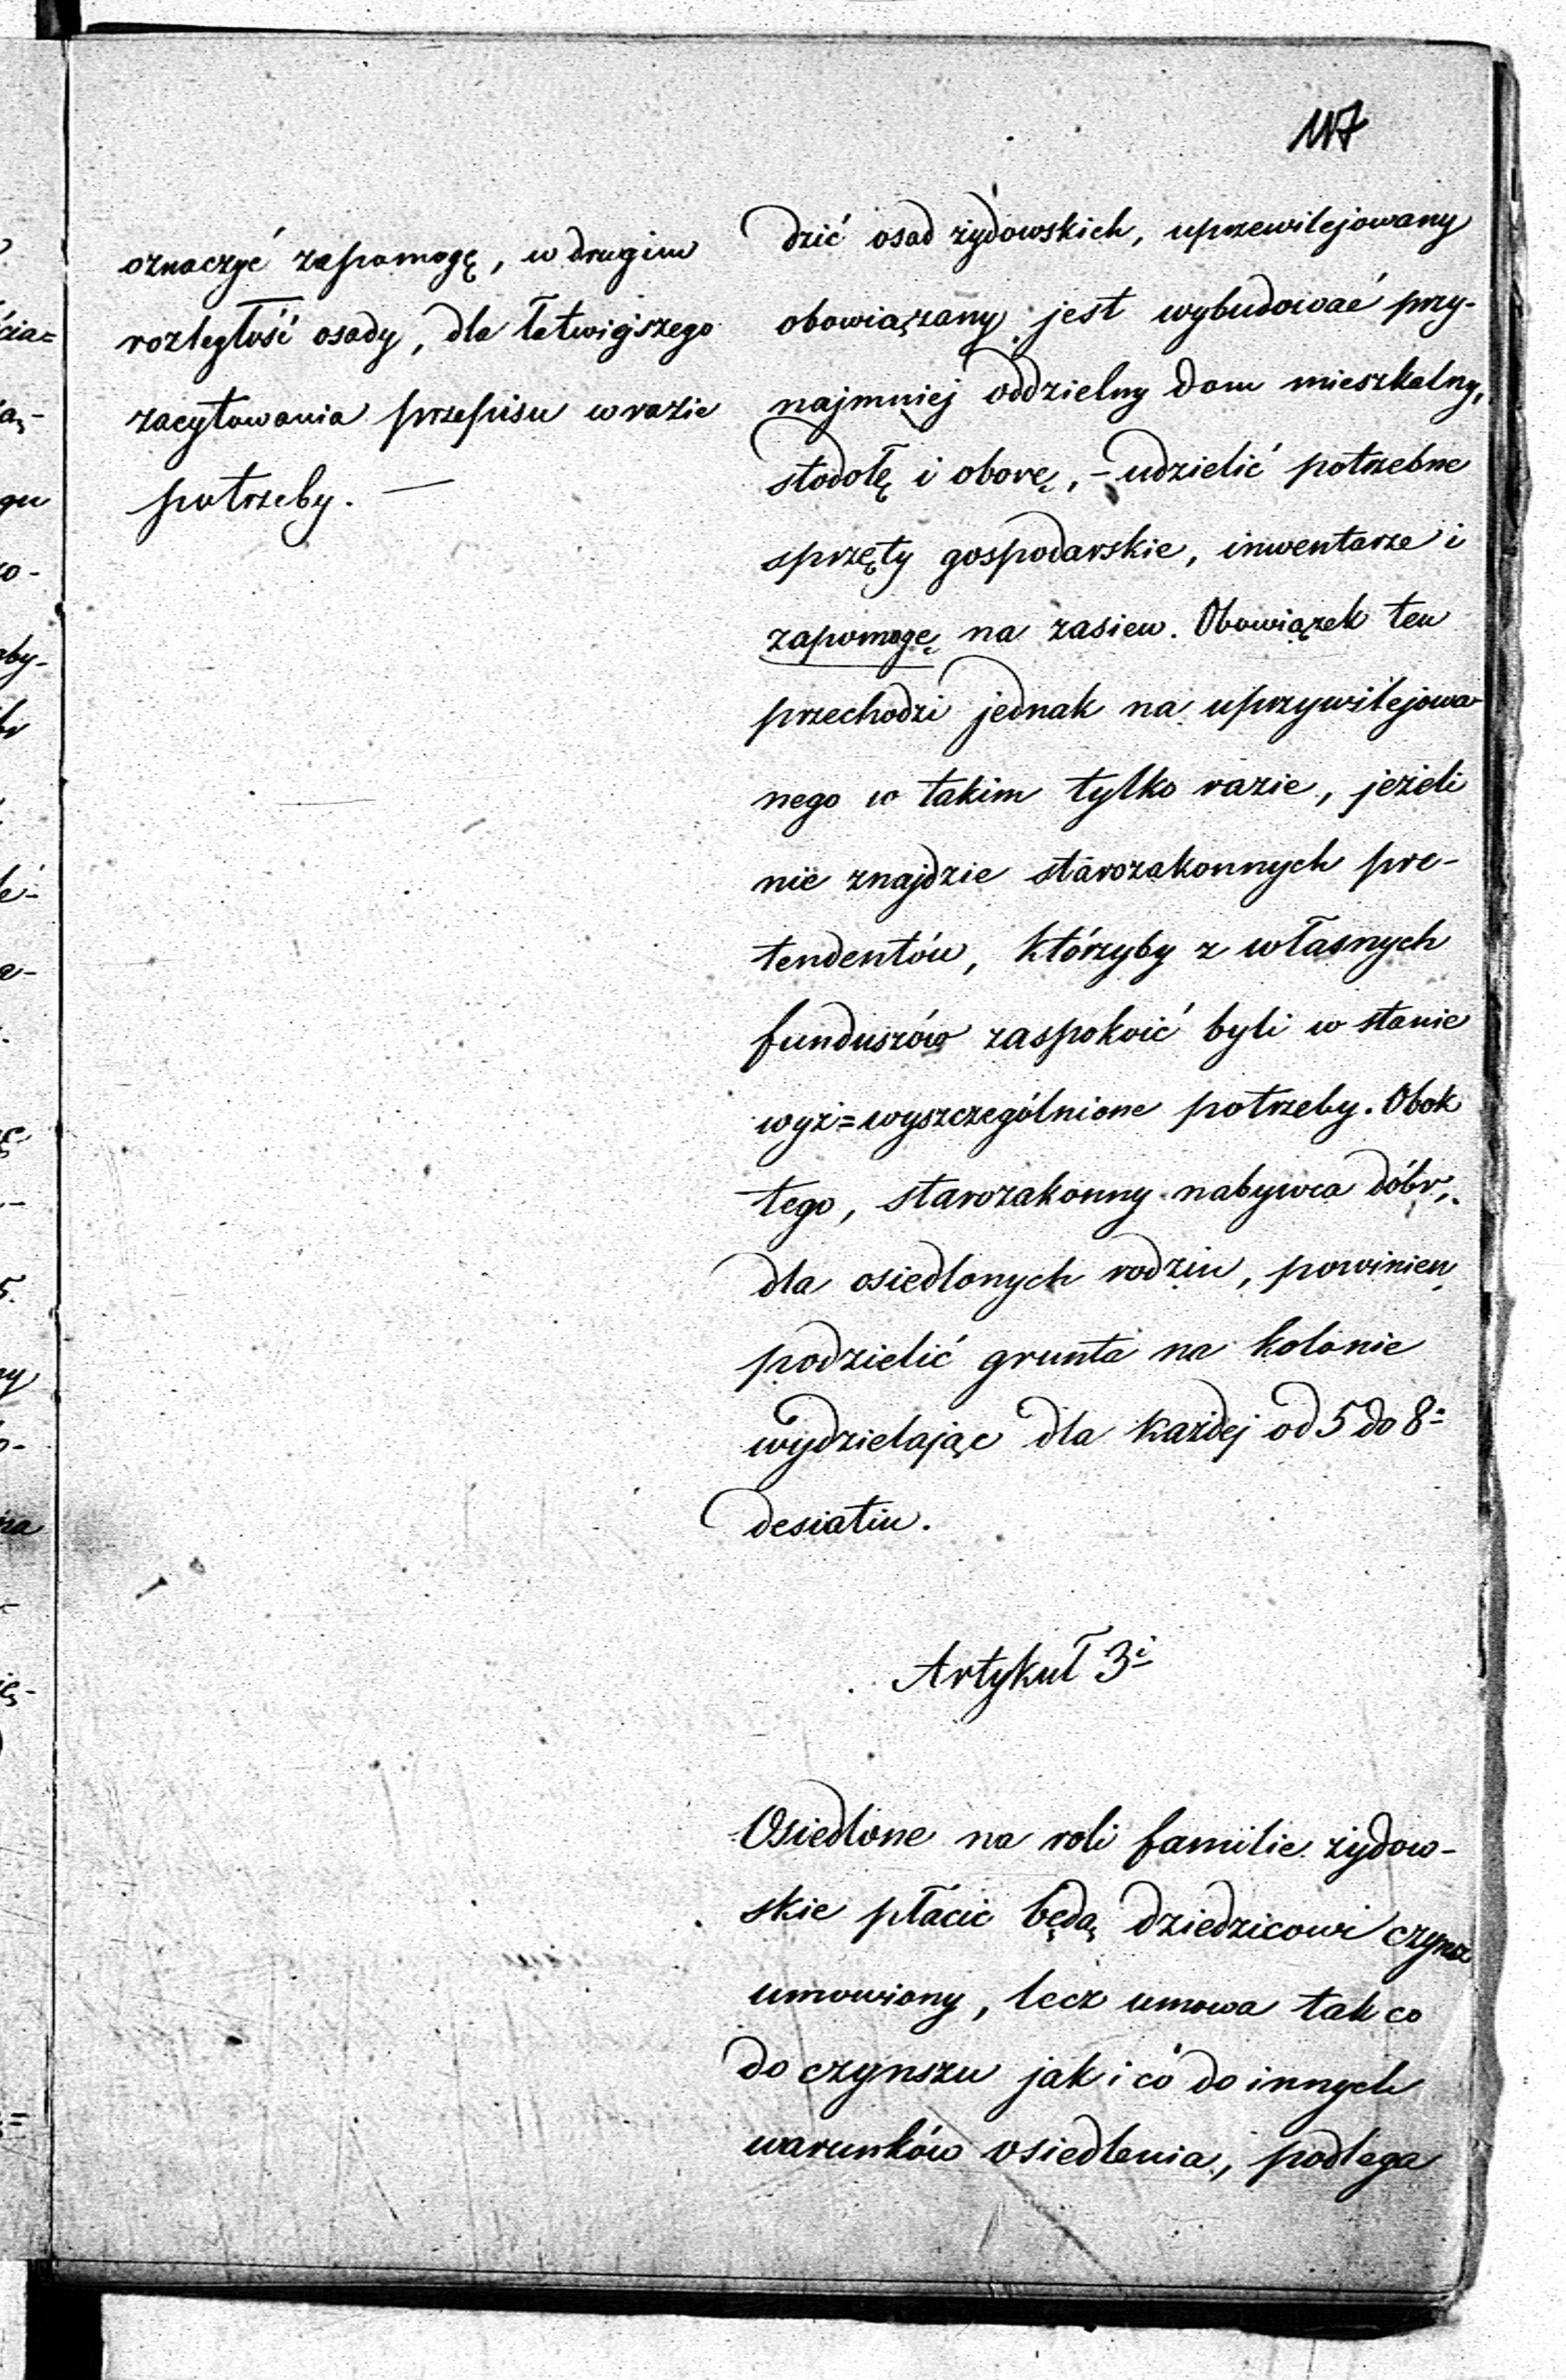 117
oznaczyć zapomogę, w drugim
rozległość osady, dla łatwiejszego
zacytowania przepisu w razie
potrzeby. —
dzić osad żydowskich, uprzewilejowany
obowiązany jest wybudować przy-
najmniej oddzielny dom mieszkalny,
stodołę i oborę, – udzielić potrzebne
sprzęty gospodarskie, inwentarze i
zapomogę na zasiew. Obowiązek ten
przechodzi jednak na uprzywilejowa-
nego w takim tylko razie, jeżeli
nie znajdzie starozakonnych pre-
tendentów, którzyby z własnych
funduszów zaspokoić byli w stanie
wyż=wyszczególnione potrzeby. Obok
tego, starozakonny nabywca dóbr,
dla osiedlonych rodzin, powinien
podzielić grunta na kolonie
wydzielając dla każdej od 5 do 8
desiatin.
Artykuł 3i
Osiedlone na roli familie żydow-
skie płacić będą dziedzicowi czynsz
umowiony, lecz umowa tak co
do czynszu jak i co do innych
warunków osiedlenia, podlega